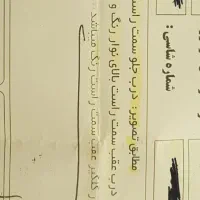 شماره شاسی :
مطابق تصویر: درب جلو سمت راست
درب عقب سمت راست بالای نوار رنگ و
گلگیر عقب سمت راست رنگ میباشد